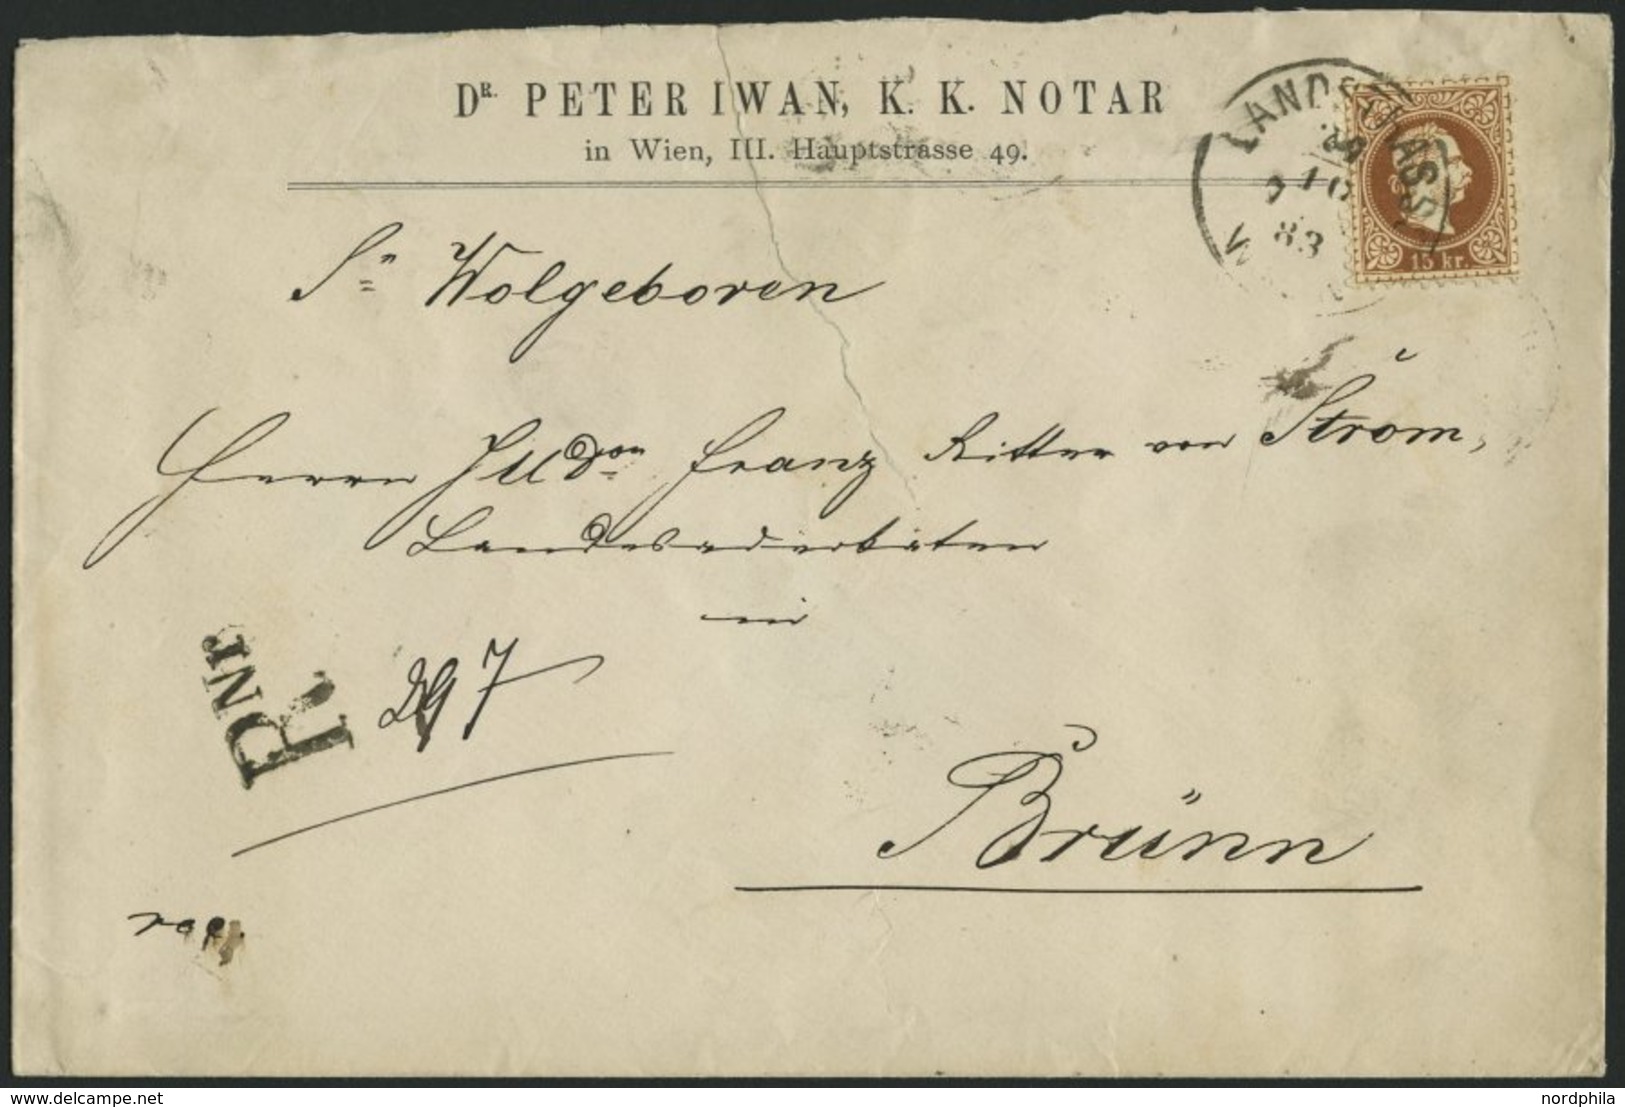 DR. PETER IWAN, K. K. NOTAR
in Wien, III. Hauptstrasse 49.
LANDSTRASSE
83
15 kr.
Sr Wolgeboren
Herrn JUDor Franz Ritter von Strom,
Landesadvokaten
in
R. Nr. 297
Brünn
rec.
akpool.com
nordphila